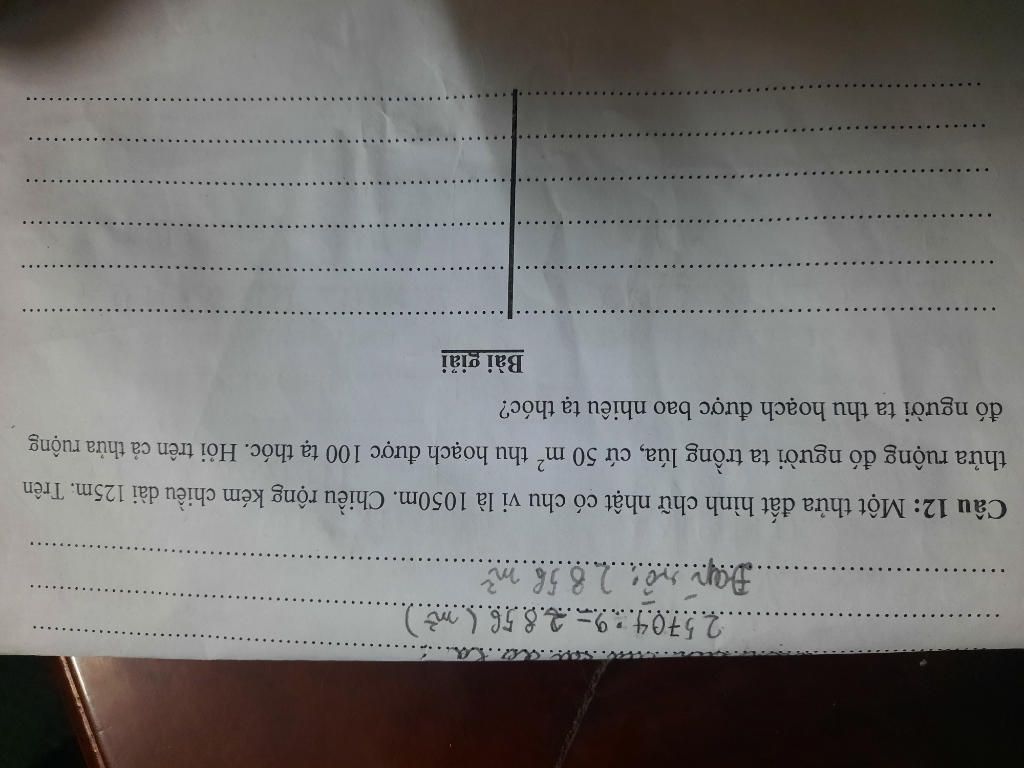 25704 : 9 = 2856 (m²)
Đáp số: 2856 m²
Câu 12: Một thửa đất hình chữ nhật có chu vi là 1050m. Chiều rộng kém chiều dài 125m. Trên
thửa ruộng đó người ta trồng lúa, cứ 50 m² thu hoạch được 100 tạ thóc. Hỏi trên cả thửa ruộng
đó người ta thu hoạch được bao nhiêu tạ thóc?
Bài giải